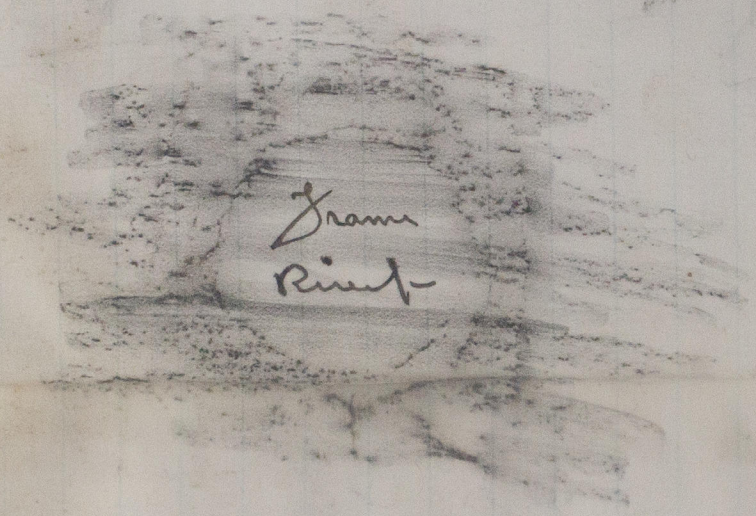 Frame
Rivet